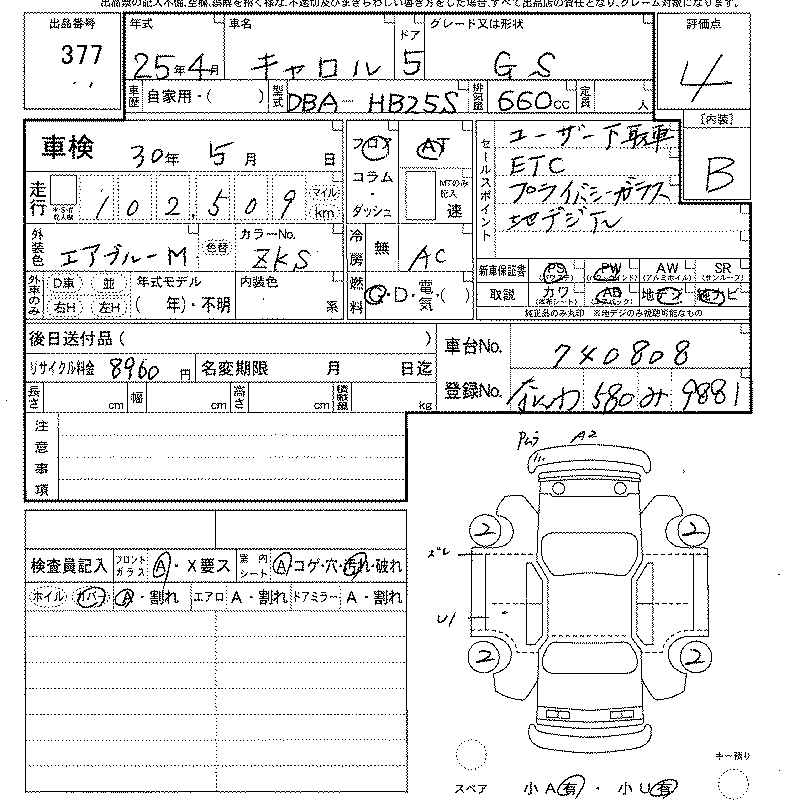 出品番号 377
年式 25年4月
車名 キャロル
ドア 5
グレード又は形状 GS
評価点 4
車歴 自家用・( )
型式 DBA-HB25S
排気量 660cc
定員 人
[内装] B
車検 30年 5月 日
走行 102,509 マイル km
フロア コラム・ダッシュ
AT
MTのみ記入 速
セールスポイント
ユーザー下取車
ETC
プライバシーガラス
地デジTV
外装色 エアブルーM
色替
カラーNo. ZKS
冷房 無 AC
外車のみ D車 並 右H 左H
年式モデル ( 年)・不明
内装色 系
燃料 G・D・電気・( )
新車保証書 PS PW AW (アルミホイル) SR (サンルーフ)
取説 カワ AB 地デジ 純ナビ
純正品のみ丸印 ※地デジのみ視聴可能なもの
後日送付品 ( )
リサイクル料金 8960 円
名変期限 月 日迄
長さ cm 幅 cm 高さ cm 積載量 kg
車台No. 740808
登録No. なにわ 580 み 9881
注意事項
検査員記入 フロントガラス A・X要ス 室内シート A コゲ・穴・汚れ・破れ
ホイル カバー A・割れ エアロ A・割れ ドアミラー A・割れ
A2
2 2
ズレ
U1
2 2
スペア
キー残り
小A有・小U有